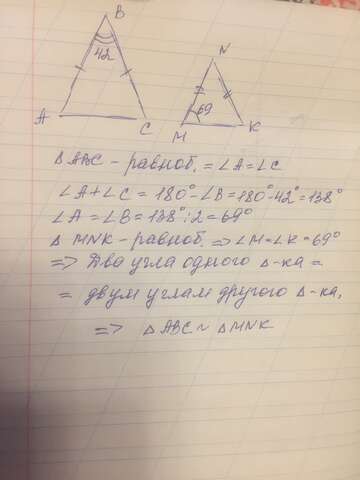 B
42
A
C
N
69
M
K
Δ ABC - равноб. = ∠A = ∠C
∠A + ∠C = 180° - ∠B = 180° - 42° = 138°
∠A = ∠B = 138° : 2 = 69°
Δ MNK - равноб. => ∠M = ∠K = 69°
=> Два угла одного Δ-ка =
= двум углам другого Δ-ка,
=> Δ ABC ~ Δ MNK